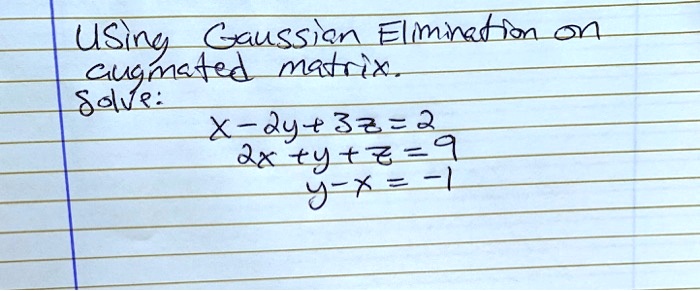 Using Gaussian Elimination on
augmated matrix.
Solve:
x-2y+3z=2
2x+y+z=9
y-x=-1